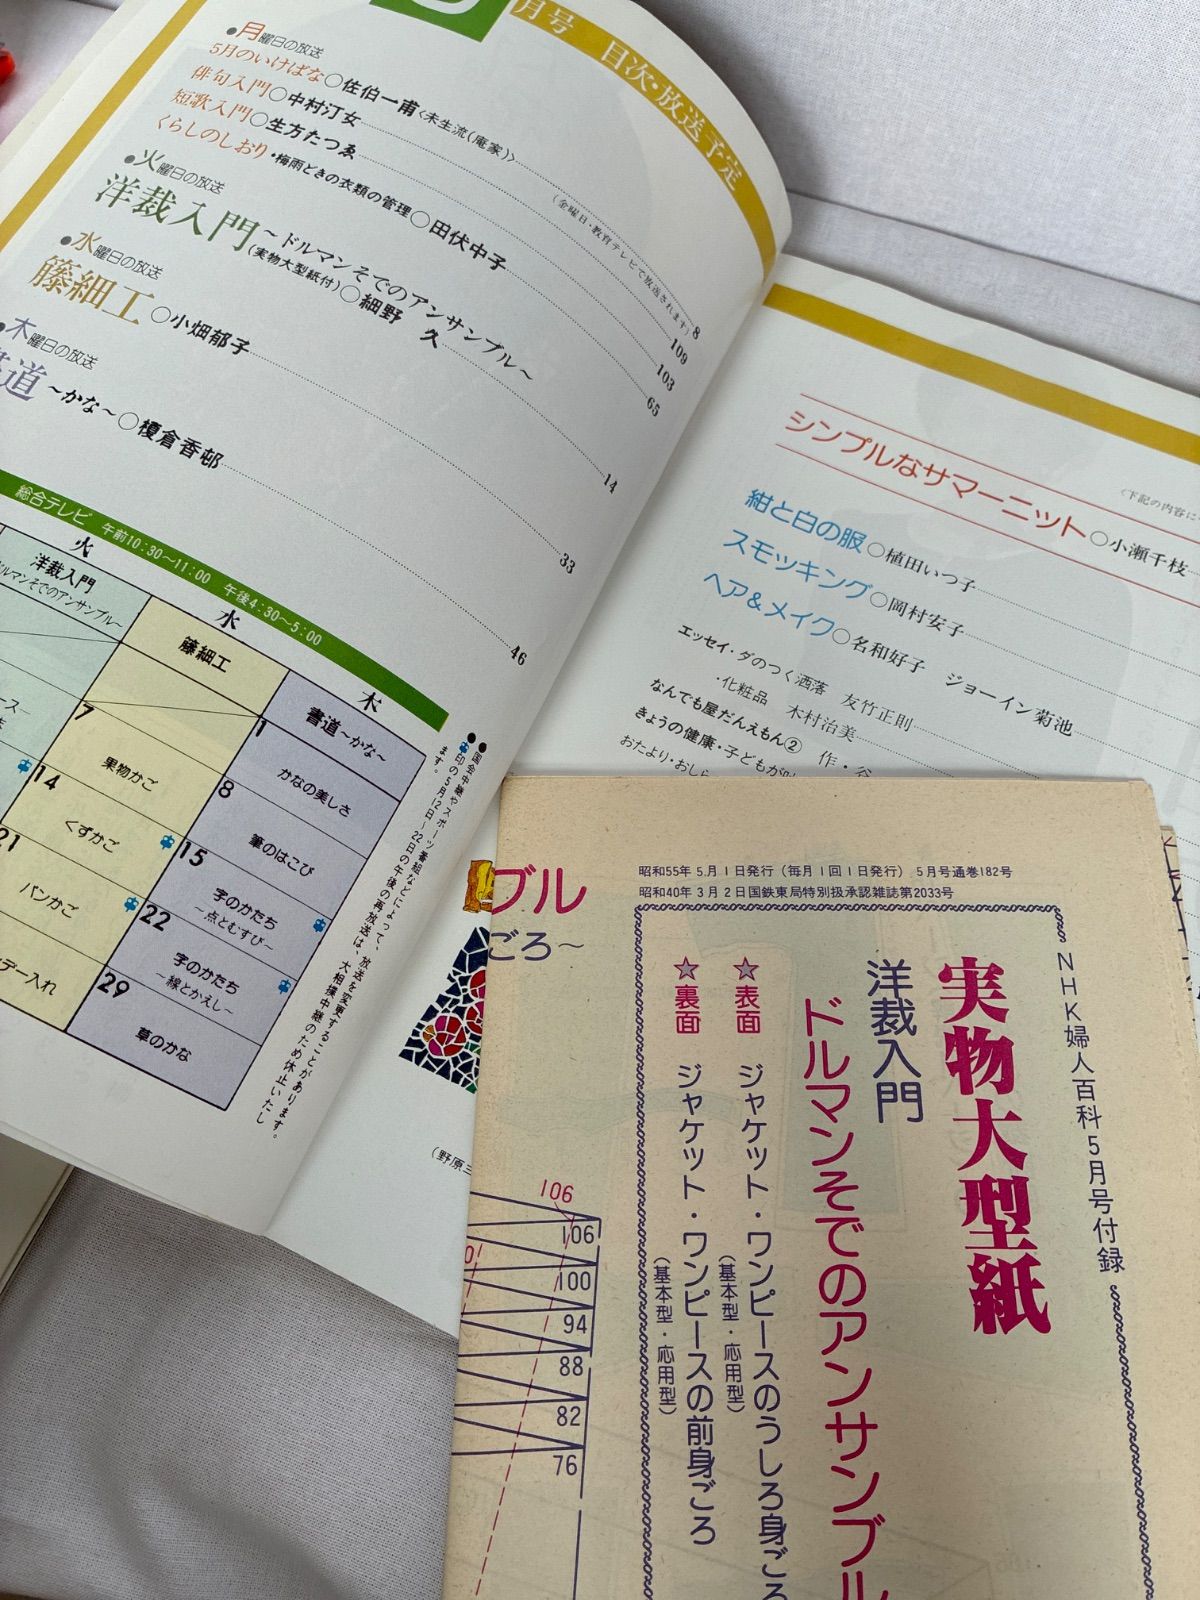 月号 目次・放送予定
●月曜日の放送
5月のいけばな○佐伯一甫〈未生流(庵家)〉
(金曜日・教育テレビで放送されます) 8
俳句入門○中村汀女 109
短歌入門○生方たつゑ 103
くらしのしおり・梅雨どきの衣類の管理○田伏中子 65
●火曜日の放送
洋裁入門〜ドルマンそでのアンサンブル〜
(実物大型紙付)○細野 久 14
●水曜日の放送
籐細工○小畑郁子 33
●木曜日の放送
道〜かな〜○榎倉香邨 46
総合テレビ 午前10:30〜11:00 午後4:30〜5:00
火
水
木
洋裁入門
ドルマンそでのアンサンブル〜
籐細工
書道〜かな〜
1 かなの美しさ
7 果物かご
8 筆のはこび
14 くずかご
15 字のかたち
〜点とむすび〜
21 パンかご
22 字のかたち
〜線とかえし〜
デー入れ
29 草のかな
●国会中継やスポーツ番組などによって、放送を変更することがあります。
●印の5月12日〜22日の午後の再放送は、大相撲中継のため休止いたし
ます。
シンプルなサマーニット○小瀬千枝
〈下記の内容に
紺と白の服○植田いつ子
スモッキング○岡村安子
ヘア&メイク○名和好子 ジョーイン菊池
エッセイ・ダのつく洒落 友竹正則
・化粧品 木村治美
なんでも屋だんえもん② 作・谷
きょうの健康・子どもが
おたより・おしら
(野原三
ブル
ごろ〜
昭和55年5月1日発行(毎月1回1日発行) 5月号通巻182号
昭和40年3月2日国鉄東局特別扱承認雑誌第2033号
NHK婦人百科5月号付録
実物大型紙
洋裁入門
ドルマンそでのアンサンブル
☆表面 ジャケット・ワンピースのうしろ身ごろ
(基本型・応用型)
☆裏面 ジャケット・ワンピースの前身ごろ
(基本型・応用型)
106
106
100
94
88
82
76